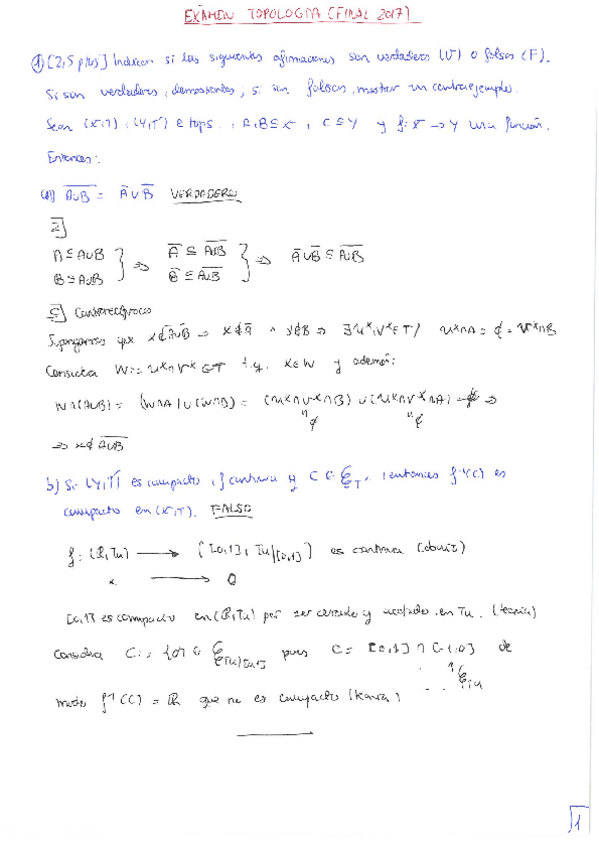 EXÁMEN TOPOLOGÍA (FINAL 2017)
① [2,5 ptos] Indicar si las siguientes afirmaciones son verdaderas (V) o falsas (F).
Si son verdaderas, demostrarlas; si son falsas, mostrar un contraejemplo.
Sean (X,T), (Y,T') e tops., A,B⊆X, C⊆Y y f:X→Y una función.
Entonces:
a) \overline{A∪B} = \overline{A} ∪ \overline{B} VERDADERO
⊇]
A⊆A∪B
B⊆A∪B } ⇒ \overline{A} ⊆ \overline{A∪B}
\overline{B} ⊆ \overline{A∪B} } ⇒ \overline{A}∪\overline{B} ⊆ \overline{A∪B}
⊆] Contrarecíproco
Supongamos que x∉\overline{A}∪\overline{B} ⇒ x∉\overline{A} ∧ x∉\overline{B} ⇒ ∃U^x,V^x∈T / U^x∩A = ∅ = V^x∩B
Considera W := U^x∩V^x ∈T t.q. x∈W y además:
W∩(A∪B) = (W∩A)∪(W∩B) = (U^x∩V^x∩B) ∪ (U^x∩V^x∩A) = ∅ ⇒
∅ ∅
⇒ x∉\overline{A∪B}
b) Si (Y,T') es compacto, f continua y C ∈ 𝒞_{T'}, entonces f⁻¹(C) es
compacto en (X,T). FALSO
f: (ℝ,Tu) → ([0,1], Tu|[0,1]) es continua (obvio)
x → 0
[0,1] es compacto en (ℝ,Tu) por ser cerrado y acotado en Tu. (teoría)
Considera C := {0} ∈ 𝒞_{Tu|[0,1]} pues C = [0,1] ∩ [-1,0] de
∈ 𝒞_{Tu}
modo f⁻¹(C) = ℝ que no es compacto (teoría)
1